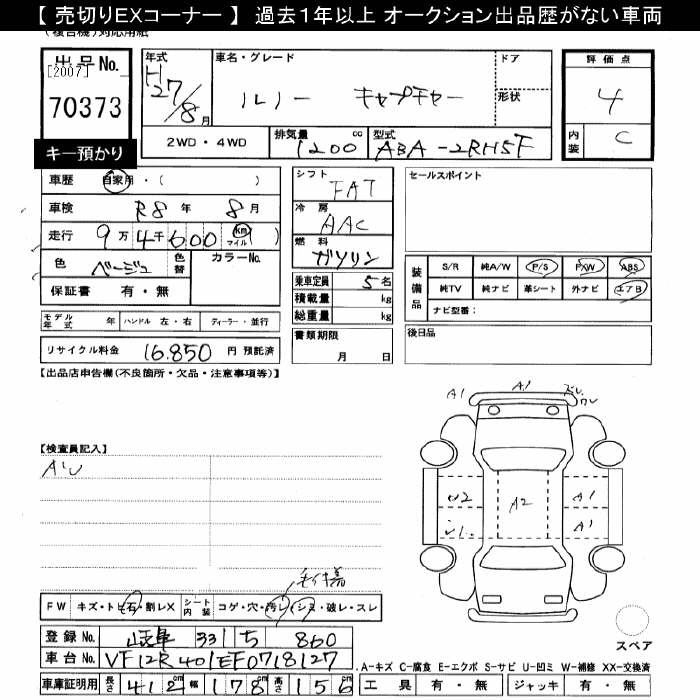 【 売切りEXコーナー 】 過去1年以上 オークション出品歴がない車両
(複合機)対応用紙
出品No.
[2007]
70373
キー預かり
年式 H27/8月
車名・グレード ルノー キャプチャー
ドア
形状
評価点 4
内装 C
2WD・4WD
排気量 1200 cc
型式 ABA-2RH5F
車歴 自家用・( )
車検 R8年 8月
走行 9万4千600 (km マイル)
色 ベージュ 色替 カラーNo.
保証書 有・無
モデル年式 年 ハンドル 左・右 ディーラー・並行
リサイクル料金 16,850 円 預託済
シフト FAT
冷房 AAC
燃料 ガソリン
乗車定員 5名
積載量 kg
総重量 kg
書類期限
月 日
セールスポイント
装備品 S/R 純A/W P/S P/W ABS
純TV 純ナビ 革シート 外ナビ エアB
ナビ型番:
後日品
【出品店申告欄(不良箇所・欠品・注意事項等)】
【検査員記入】
A1 A1
A2
A1
A1
FW キズ・トビ石・割レX シート内装 コゲ・穴・汚レ・シミ・破レ・スレ
スペア
登録No. 岐阜 331 ち 860
車台No. VF12R401EF0718127
車庫証明用 長さ 412 cm 幅 178 cm 高さ 156
A-キズ C-腐食 E-エクボ S-サビ U-凹ミ W-補修 XX-交換済
工具 有・無 ジャッキ 有・無